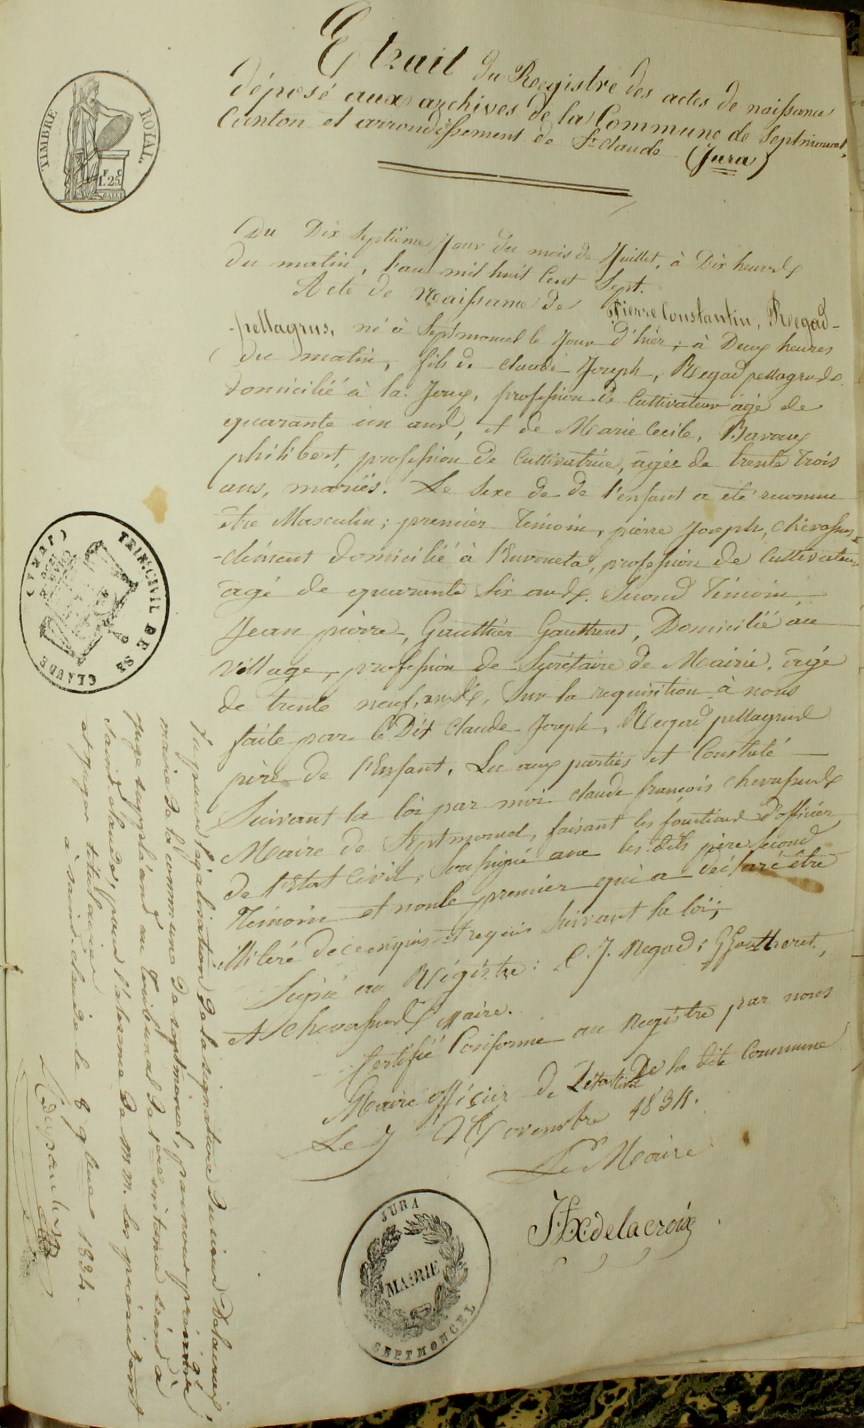 Extrait du Registre des actes de naissance
déposé aux archives de la Commune de Septmoncel,
Canton et arrondissement de St Claude (Jura)
TIMBRE ROYAL.
1F. 25C
Du Dix Septième jour du mois de Juillet, à Dix heures
du matin, l'an mil huit Cent Sept.
Acte de Naissance de Pierre Constantin, Regad-
-pellagrus, né à Septmoncel le Jour d'hier, à Deux heures
du matin, fils de Claude Joseph, Regad pellagrus
domicilié à la Joux, profession de Cultivateur agé de
quarante un ans, et de Marie Cecile, Bavoux
philibert, profession de Cultivatrice, agée de trente trois
ans, mariés. Le Sexe de de l'enfant a été reconnu
être Masculin; premier Témoin, pierre Joseph, Chevassus
-clément domicilié à profession de Cultivateur
agé de quarante Six ans. Second Témoin
Jean pierre, Gauthier Domicilié au
village, profession de Sécrétaire de Mairie, agé
de trente neuf ans, Sur la requisition à nous
faite par le Dit Claude Joseph, Regad pellagrus
père de l'Enfant. Lu aux parties et Constaté
Suivant la loi par moi Claude françois Chevassus
Maire de Septmoncel, faisant les fonctions d'officier
de l'Etat Civil, Soussigné avec les dits père Second
Témoin et non le premier qui a déclaré être
illiteré de ce enquis et requis Suivant la loi,
Signé au Régistre: C. J. Regad; Gauthier,
et Chevassus Maire.
Certifié Conforme au Registre par nous
Maire officier de L'état Civil De la dite Commune
Le 7 Novembre 1834.
Le Maire
JFXdelacroix
JURA
MAIRIE
SEPTMONCEL
TRIB. CIVIL DE ST CLAUDE (JURA)
Vu pour légalisation de la signature du sieur Delacroix,
maire de la commune de Septmoncel, par nous premier
juge suppléant au Tribunal de 1ère instance séant à
Saint Claude, pour l'absence de MM. les président
et juges titulaires
à Saint-Claude le 8 9bre 1834.